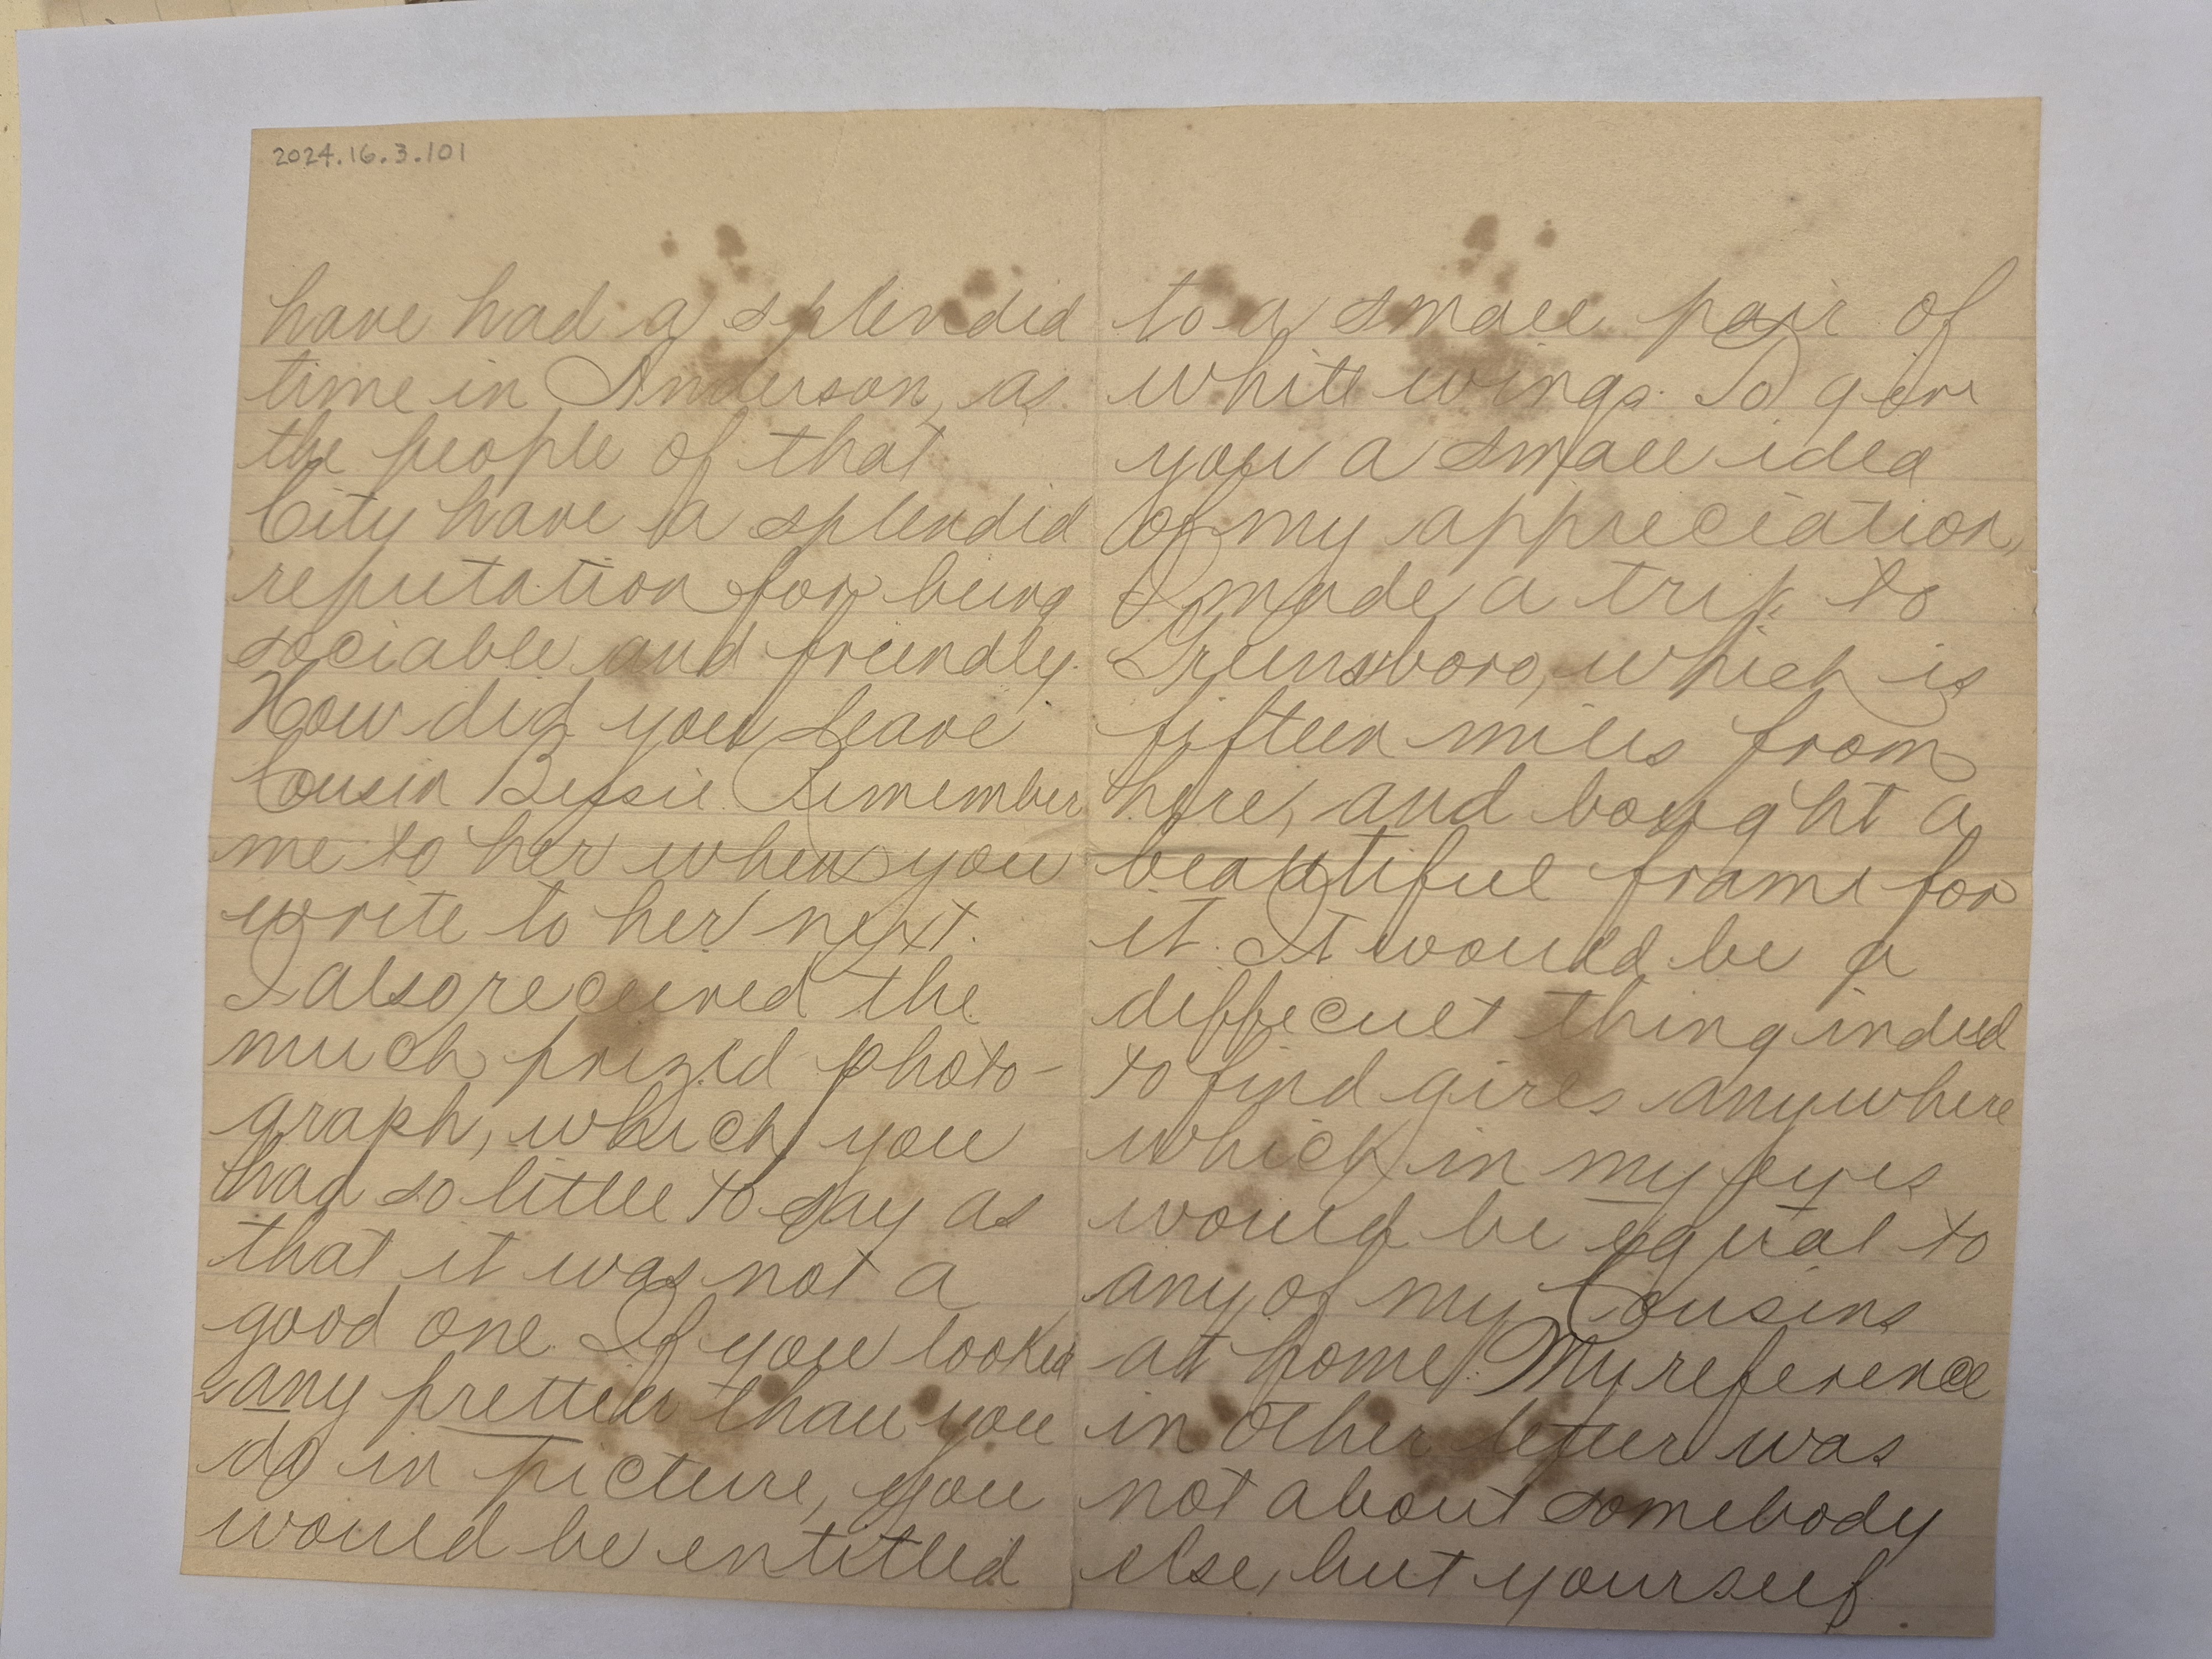 2024.16.3.101
have had a splendid
time in Anderson, as
the people of that
City have a splendid
reputation for being
sociable and friendly.
How did you leave
Cousin Bessie. Remember
me to her when you
write to her next.
I also received the
much prized photo-
graph, which you
had so little to say as
that it was not a
good one. If you looked
any prettier than you
do in picture, you
would be entitled
to a small pair of
white wings. To give
you a small idea
of my appreciation,
I made a trip to
Greensboro, which is
fifteen miles from
here, and bought a
beautiful frame for
it. It would be a
difficult thing indeed
to find girls anywhere
which in my eyes
would be equal to
any of my Cousins
at home. My reference
in other letter was
not about somebody
else, but yourself.